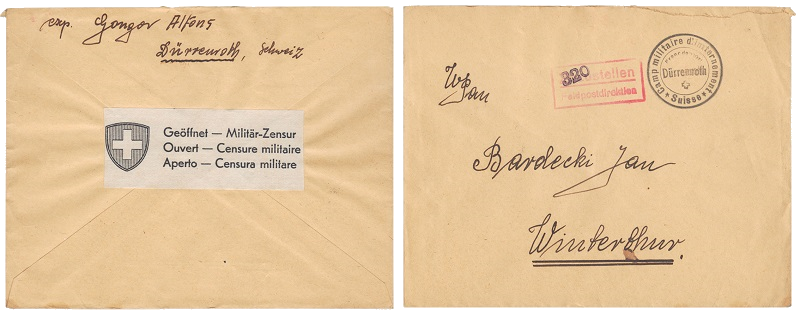 exp. Gongor Alfons
Dürrenroth, Schweiz
Geöffnet — Militär-Zensur
Ouvert — Censure militaire
Aperto — Censura militare
WPan
320
Feldpostdirektion
Camp militaire d'internement
Dürrenroth
Suisse
Bardecki Jan
Winterthur.